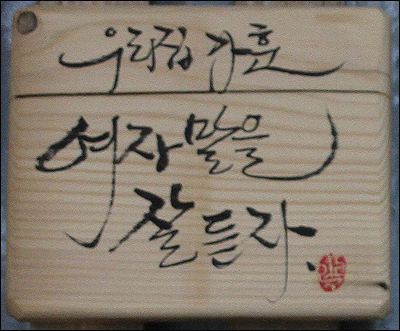 우리집 가훈
여자 말을
잘 듣자.